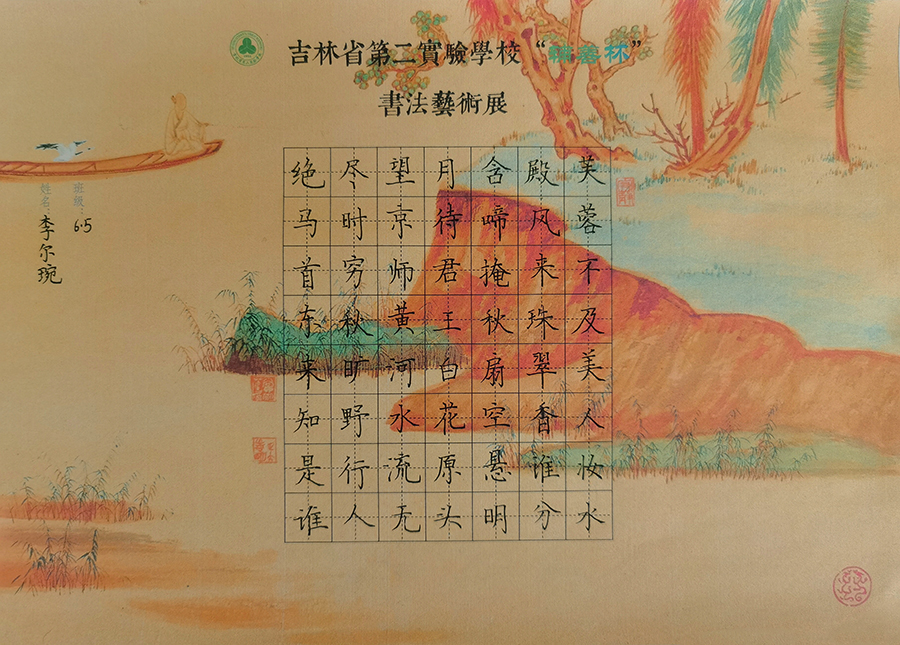 吉林省第二實驗學校“ 林”
書法藝術展
芙蓉不及美人妆水
殿风来珠翠香谁分
含啼掩秋扇空悬明
月待君王白花原头
望京师黄河水流无
尽时穷秋旷野行人
绝马首东来知是谁
班級: 6.5
姓名: 李尔琬